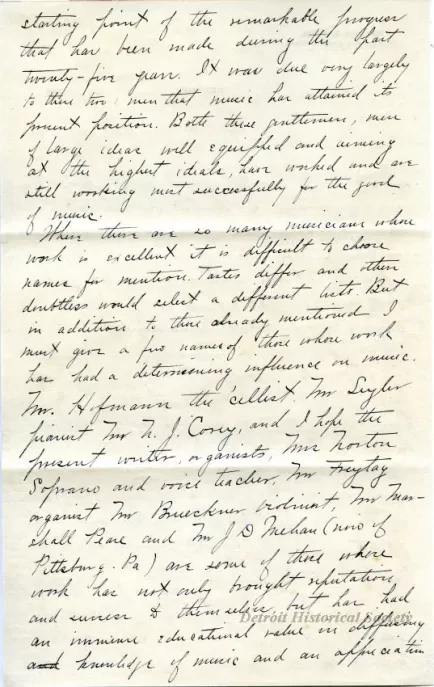 starting point of the remarkable progress
that has been made during the past
twenty-five years. It was due very largely
to these two men that music has attained its
present position. Both these gentlemen, men
of large ideas well equipped and aiming
at the highest ideals, have worked and are
still working most successfully for the good
of music.
When there are so many musicians whose
work is excellent it is difficult to choose
names for mention. Tastes differ and others
doubtless would select a different lists. But
in addition to those already mentioned I
must give a few names of those whose work
has had a determining influence on music.
Mr. Hofmann the 'cellist. Mr Seyler
pianist Mr N. J. Corey, and I hope the
present writer, organists, Mrs Norton
Soprano and voice teacher, Mr Freytag
organist Mr Brueckner violinist, Mr Mar-
shall Pease and Mr J D Mehan (now of
Pittsburg. Pa) are some of those whose
work has not only brought reputation
and success to themselves but has had
an immense educational value in diffusing
and knowledge of music and an appreciation
Detroit Historical Society